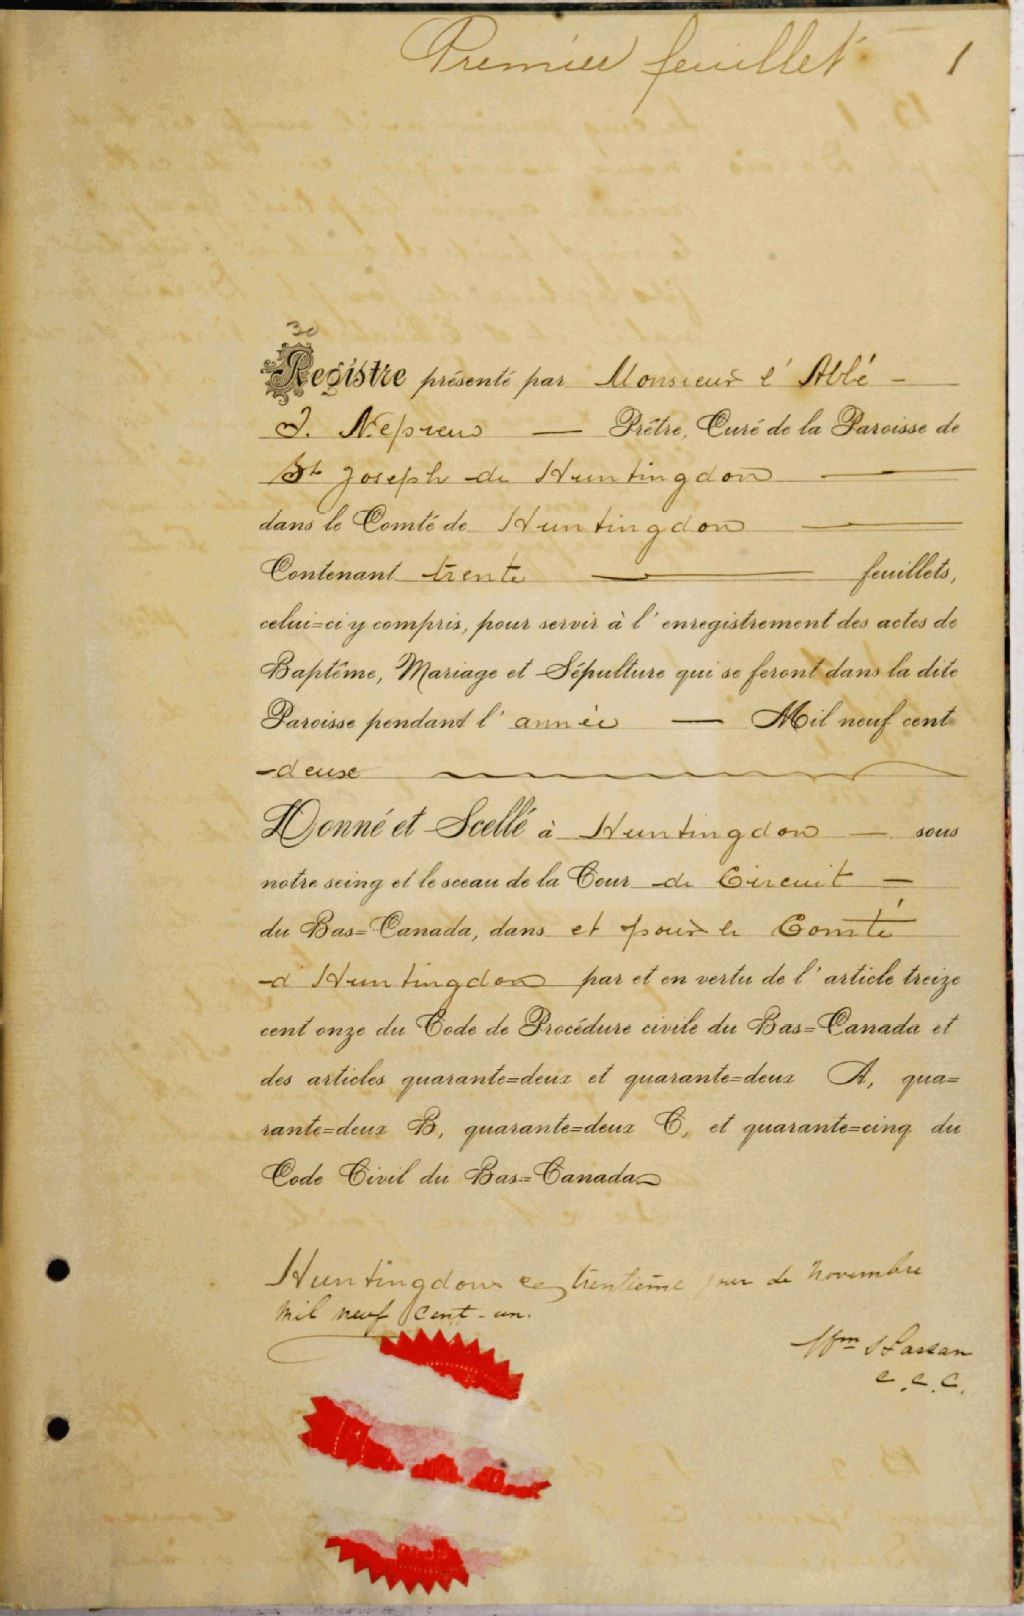 Premier feuillet 1
30
Registre présenté par Monsieur l'Abbé
J. Nepveu Prêtre, Curé de la Paroisse de
St Joseph de Huntingdon
dans le Comté de Huntingdon
Contenant trente feuillets,
celui=ci y compris, pour servir à l'enregistrement des actes de
Baptême, Mariage et Sépulture qui se feront dans la dite
Paroisse pendant l'année Mil neuf cent
deux
Donné et Scellé à Huntingdon sous
notre seing et le sceau de la Cour de Circuit
du Bas=Canada, dans et pour le Comté
d'Huntingdon par et en vertu de l'article treize
cent onze du Code de Procédure civile du Bas=Canada et
des articles quarante=deux et quarante=deux A, qua=
rante=deux B, quarante=deux C, et quarante=cinq du
Code Civil du Bas=Canada
Huntingdon ce trentieme jour de Novembre
mil neuf cent-un.
Wm
C.C.C.